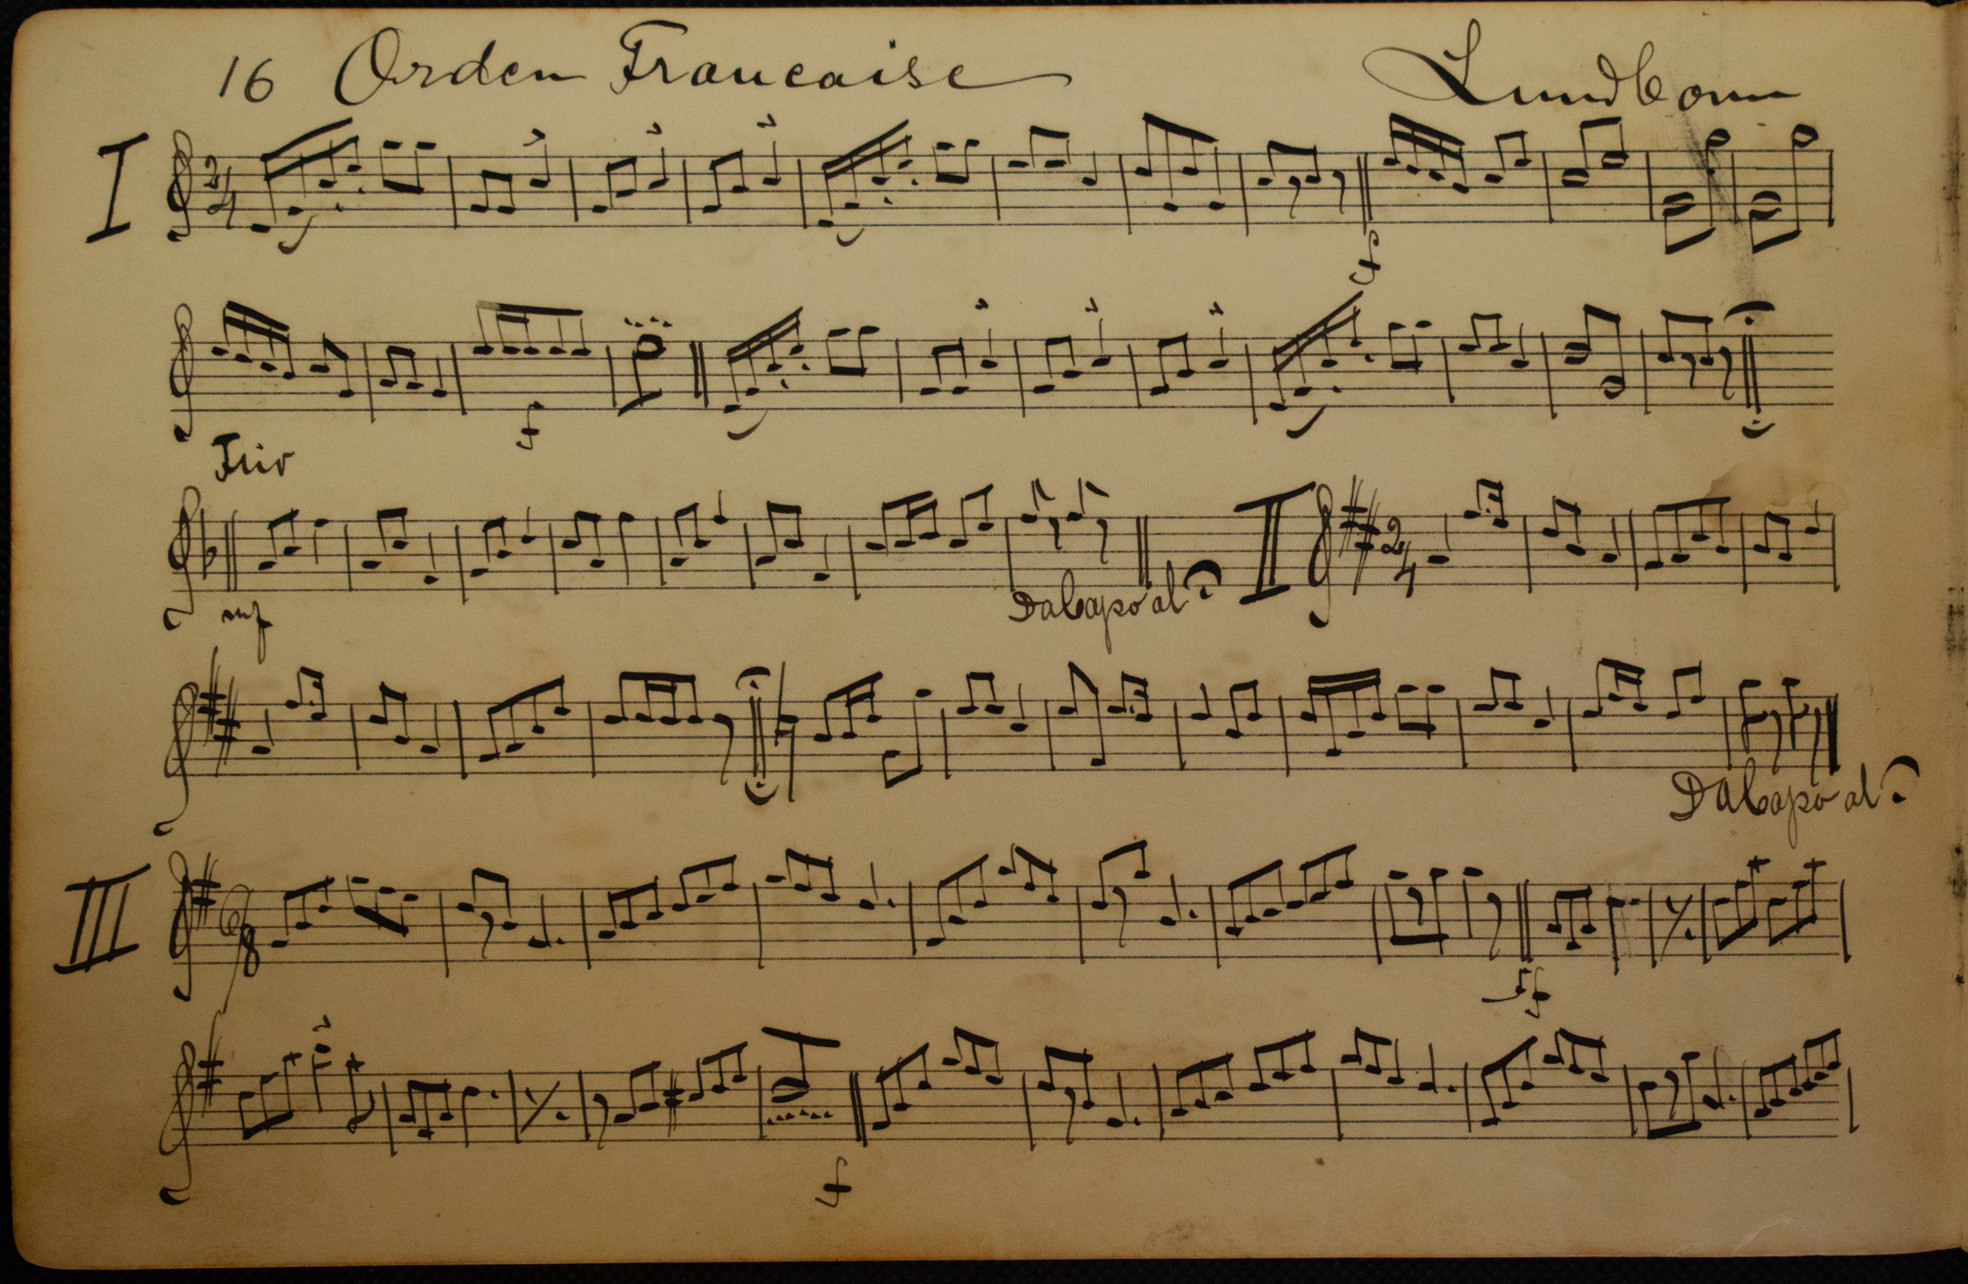 16 Orden Francaise Lundbom
I 2/4
f
f
Trio
mf Da Capo al II 2/4
Da Capo al
III 6/8
ff
f